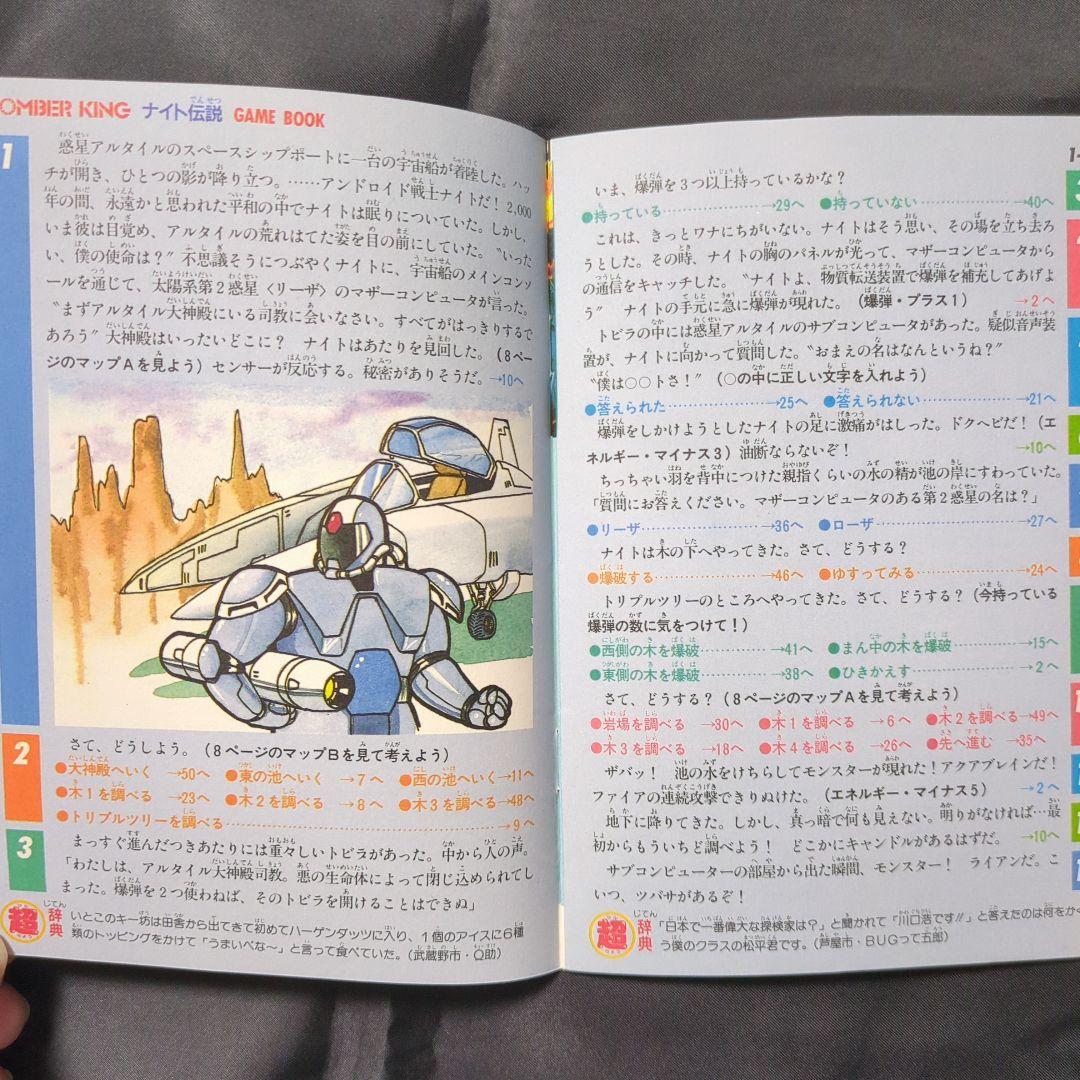 OMBER KING ナイト伝説 GAME BOOK
1
惑星アルタイルのスペースシップポートに一台の宇宙船が着陸した。ハッ
チが開き、ひとつの影が降り立つ。……アンドロイド戦士ナイトだ！2,000
年の間、永遠かと思われた平和の中でナイトは眠りについていた。しかし、
いま彼は目覚め、アルタイルの荒れはてた姿を目の前にしていた。〝いった
い、僕の使命は？〟不思議そうにつぶやくナイトに、宇宙船のメインコンソ
ールを通じて、太陽系第2惑星〈リーザ〉のマザーコンピュータが言った。
〝まずアルタイル大神殿にいる司教に会いなさい。すべてがはっきりするで
あろう〟大神殿はいったいどこに？　ナイトはあたりを見回した。（8ペー
ジのマップAを見よう）センサーが反応する。秘密がありそうだ。→10へ
2
さて、どうしよう。（8ページのマップBを見て考えよう）
●大神殿へいく →50へ ●東の池へいく →7へ ●西の池へいく→11へ
●木1を調べる →23へ ●木2を調べる →8へ ●木3を調べる→48へ
●トリプルツリーを調べる……→9へ
3
まっすぐ進んだつきあたりには重々しいトビラがあった。中から人の声。
「わたしは、アルタイル大神殿司教。悪の生命体によって閉じ込められてし
まった。爆弾を2つ使わねば、そのトビラを開けることはできぬ」
超辞典 いとこのキー坊は田舎から出てきて初めてハーゲンダッツに入り、1個のアイスに6種
類のトッピングをかけて「うまいべな〜」と言って食べていた。（武蔵野市・Q助）
いま、爆弾を3つ以上持っているかな？
●持っている……→29へ ●持っていない……→40へ
これは、きっとワナにちがいない。ナイトはそう思い、その場を立ち去ろ
うとした。その時、ナイトの胸のパネルが光って、マザーコンピュータから
の通信をキャッチした。〝ナイトよ、物質転送装置で爆弾を補充してあげよ
う〟　ナイトの手元に急に爆弾が現れた。（爆弾・プラス1） →2へ
トビラの中には惑星アルタイルのサブコンピュータがあった。疑似音声装
置が、ナイトに向かって質問した。〝おまえの名はなんというね？〟
〝僕は○○トさ！〟（○の中に正しい文字を入れよう）
●答えられた……→25へ ●答えられない……→21へ
爆弾をしかけようとしたナイトの足に激痛がはしった。ドクヘビだ！（エ
ネルギー・マイナス3）油断ならないぞ！ →10へ
ちっちゃい羽を背中につけた親指くらいの水の精が池の岸にすわっていた。
「質問にお答えください。マザーコンピュータのある第2惑星の名は？」
●リーザ……→36へ ●ローザ……→27へ
ナイトは木の下へやってきた。さて、どうする？
●爆破する……→46へ ●ゆすってみる……→24へ
トリプルツリーのところへやってきた。さて、どうする？（今持っている
爆弾の数に気をつけて！）
●西側の木を爆破……→41へ ●まん中の木を爆破……→15へ
●東側の木を爆破……→38へ ●ひきかえす……→2へ
さて、どうする？（8ページのマップAを見て考えよう）
●岩場を調べる →30へ ●木1を調べる →6へ ●木2を調べる→49へ
●木3を調べる →18へ ●木4を調べる →26へ ●先へ進む →35へ
ザバッ！　池の水をけちらしてモンスターが現れた！アクアブレインだ！
ファイアの連続攻撃できりぬけた。（エネルギー・マイナス5） →2へ
地下に降りてきた。しかし、真っ暗で何も見えない。明りがなければ…最
初からもういちど調べよう！　どこかにキャンドルがあるはずだ。 →10へ
サブコンピューターの部屋から出た瞬間、モンスター！　ライアンだ。こ
いつ、ツバサがあるぞ！
超辞典 「日本で一番偉大な探検家は？」と聞かれて「川口浩です!!」と答えたのは何を
う僕のクラスの松平君です。（芦屋市・BUGって五郎）